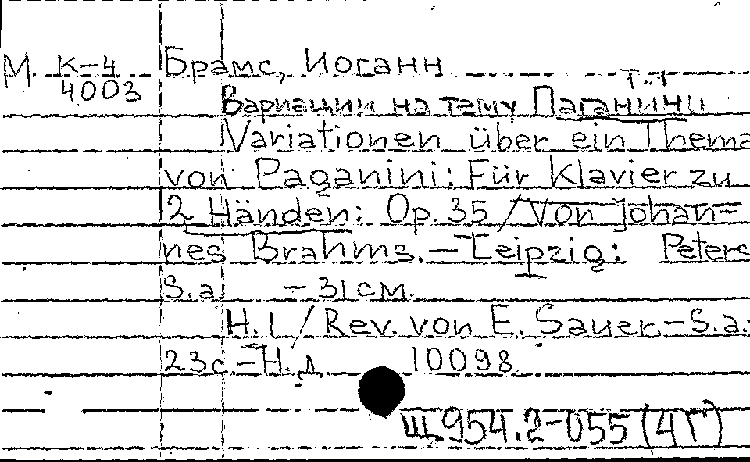 М К-4 Брамс, Иоганн
4003 Т.1
Вариации на тему Паганини
Variationen über ein Thema
von Paganini: Für Klavier zu
2 Händen: Op. 35 / Von Johan-
nes Brahms. – Leipzig: Peters
S.a. – 31 см.
H. 1 / Rev. von E. Sauer. – S.a.
23 с. – Н.д. 10098
Щ954.2-055(4Г)